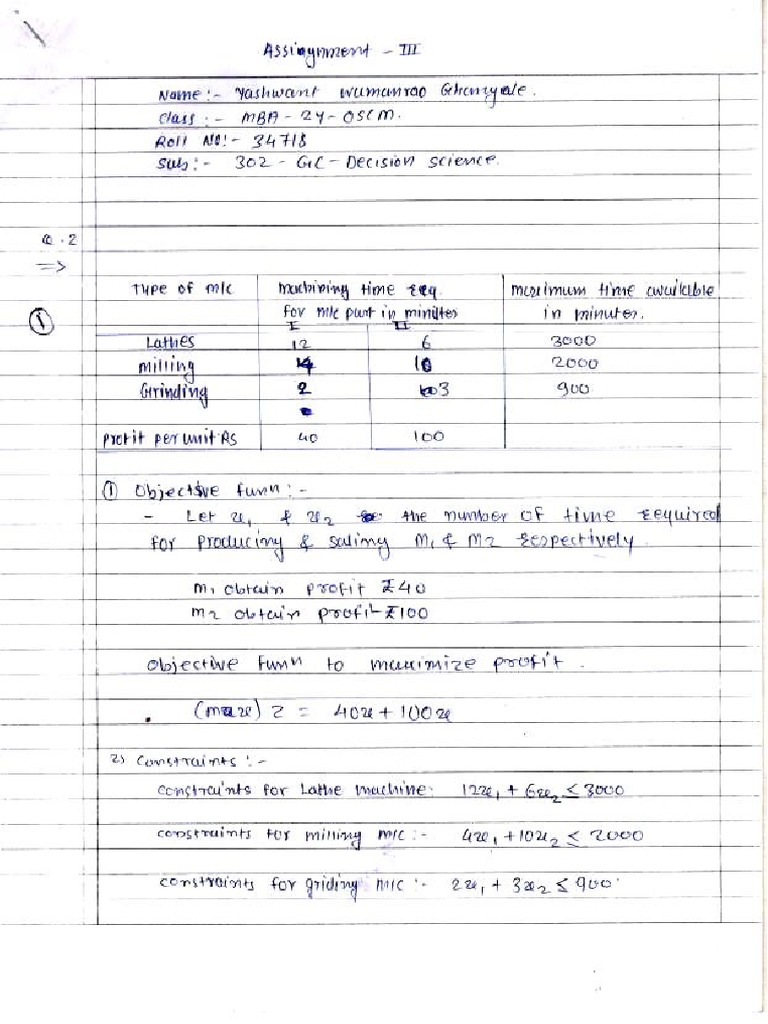 Assingnment - III
Name:- Yashwant Wamanrao Ghanyale.
Class:- MBA-2Y-OSCM.
Roll No:- 34718
Sub:- 302-GC-Decision science.
Q.2
=>
①
Type of M/c Machining time req. Maximum time available
for M/c part in minutes in minutes.
I II
Lathes 12 6 3000
Milling 4 10 2000
Grinding 2 3 900
Profit per unit Rs 40 100
① Objective funn:-
- Let x₁ & x₂ be the number of time required
for producing & saling M₁ & M2 respectively.
M₁ obtain profit ₹40
M₂ obtain profit ₹100
Objective funn to maximize profit.
(max) Z = 40x + 100x
2) Constraints:-
Constraints for Lathe machine: 12x₁ + 6x₂ ≤ 3000
Constraints for milling M/c:- 4x₁ + 10x₂ ≤ 2000
Constraints for griding M/c:- 2x₁ + 3x₂ ≤ 900.